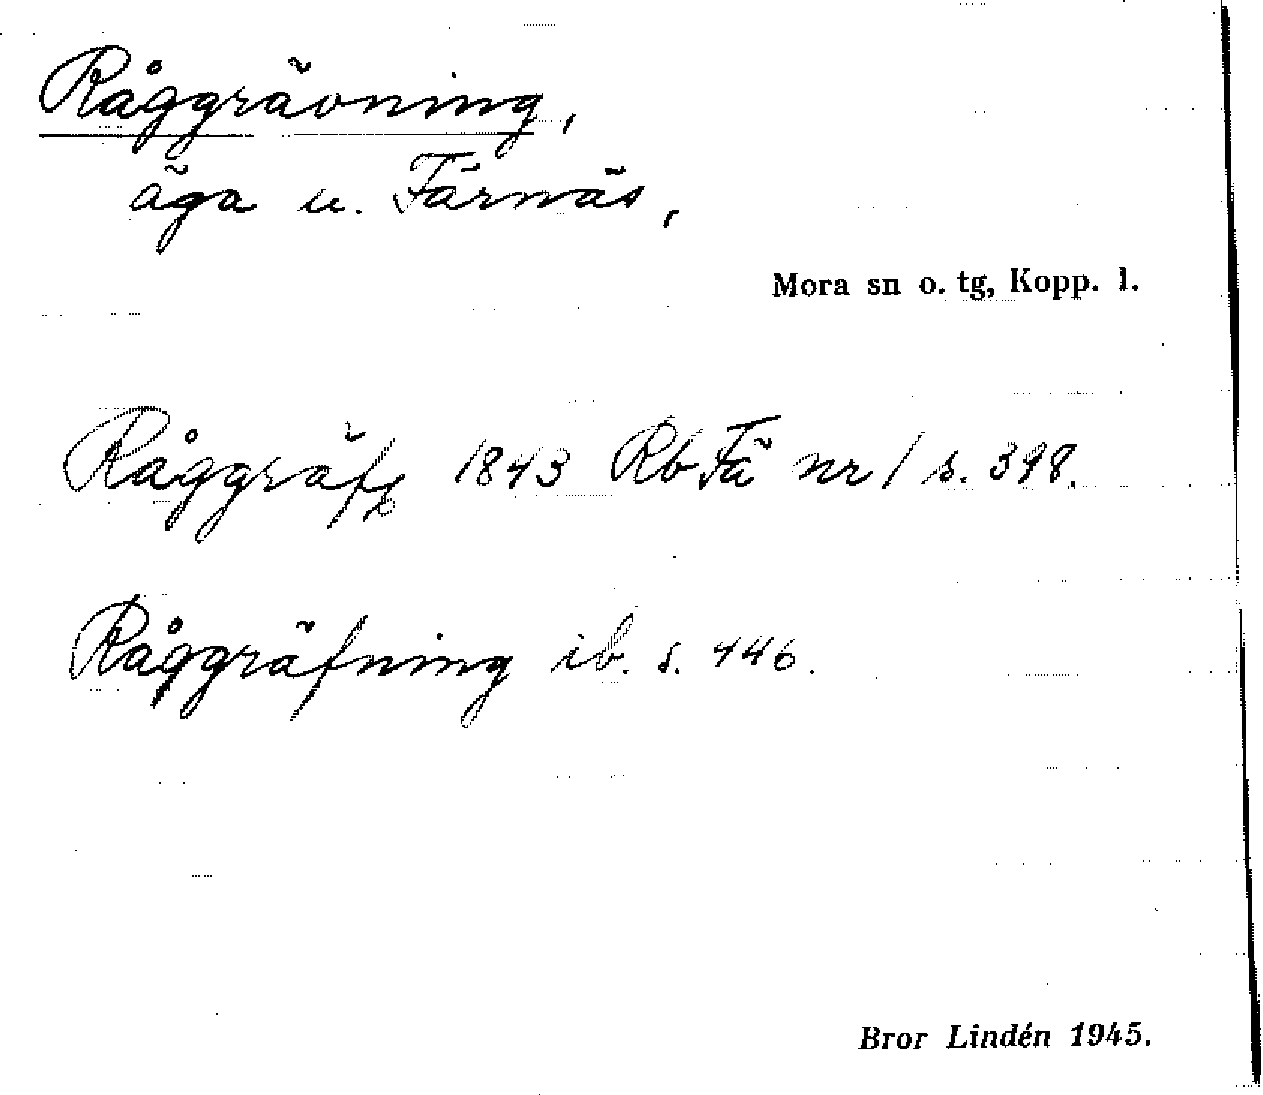 Råggrävning,
äga u. Färnäs,
Mora sn o. tg, Kopp. l.
1843 Rb Fä nr 1 s. 398.
Råggräfning ib. s. 446.
Bror Lindén 1945.